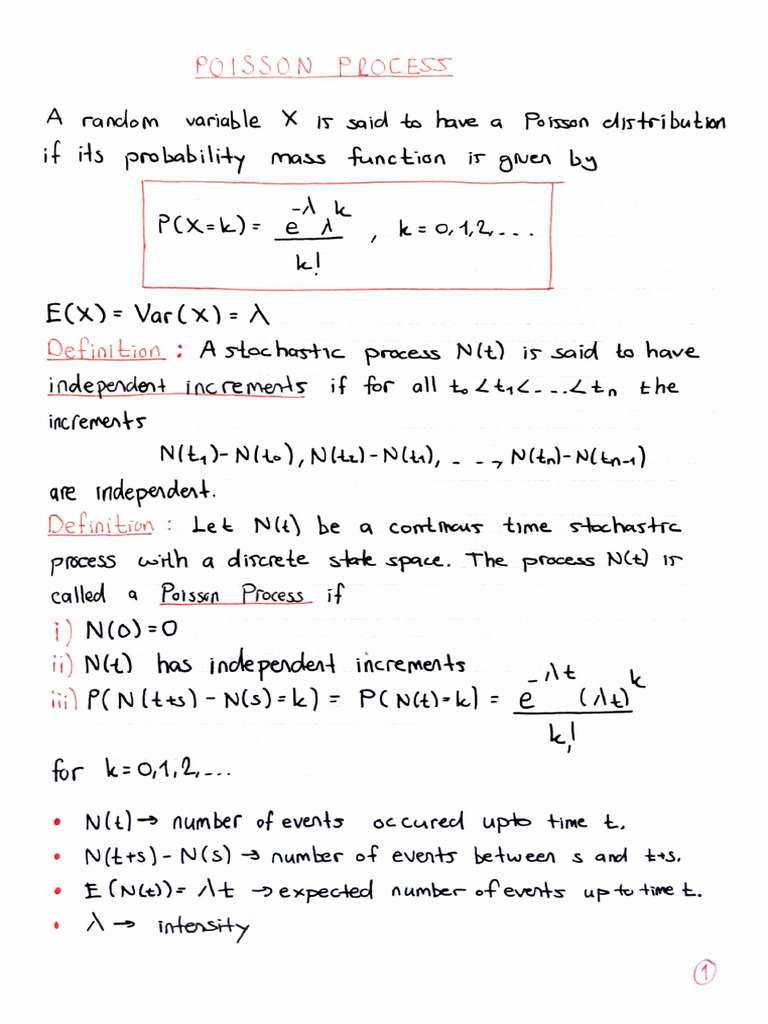 POISSON PROCESS
A random variable X is said to have a Poisson distribution
if its probability mass function is given by
P(X=k) = e^{-λ} λ^k / k! , k = 0,1,2,...
E(X) = Var(X) = λ
Definition : A stochastic process N(t) is said to have
independent increments if for all t₀<t₁<...<tₙ the
increments
N(t₁)-N(t₀), N(t₂)-N(t₁), - - -, N(tₙ)-N(tₙ₋₁)
are independent.
Definition : Let N(t) be a continous time stochastic
process with a discrete state space. The process N(t) is
called a Poisson Process if
i) N(0)=0
ii) N(t) has independent increments
iii) P(N(t+s) - N(s) = k) = P(N(t)=k) = e^{-λt} (λt)^k / k!
for k=0,1,2,...
• N(t) → number of events occured upto time t.
• N(t+s) - N(s) → number of events between s and t+s.
• E(N(t)) = λt → expected number of events up to time t.
• λ → intensity
1